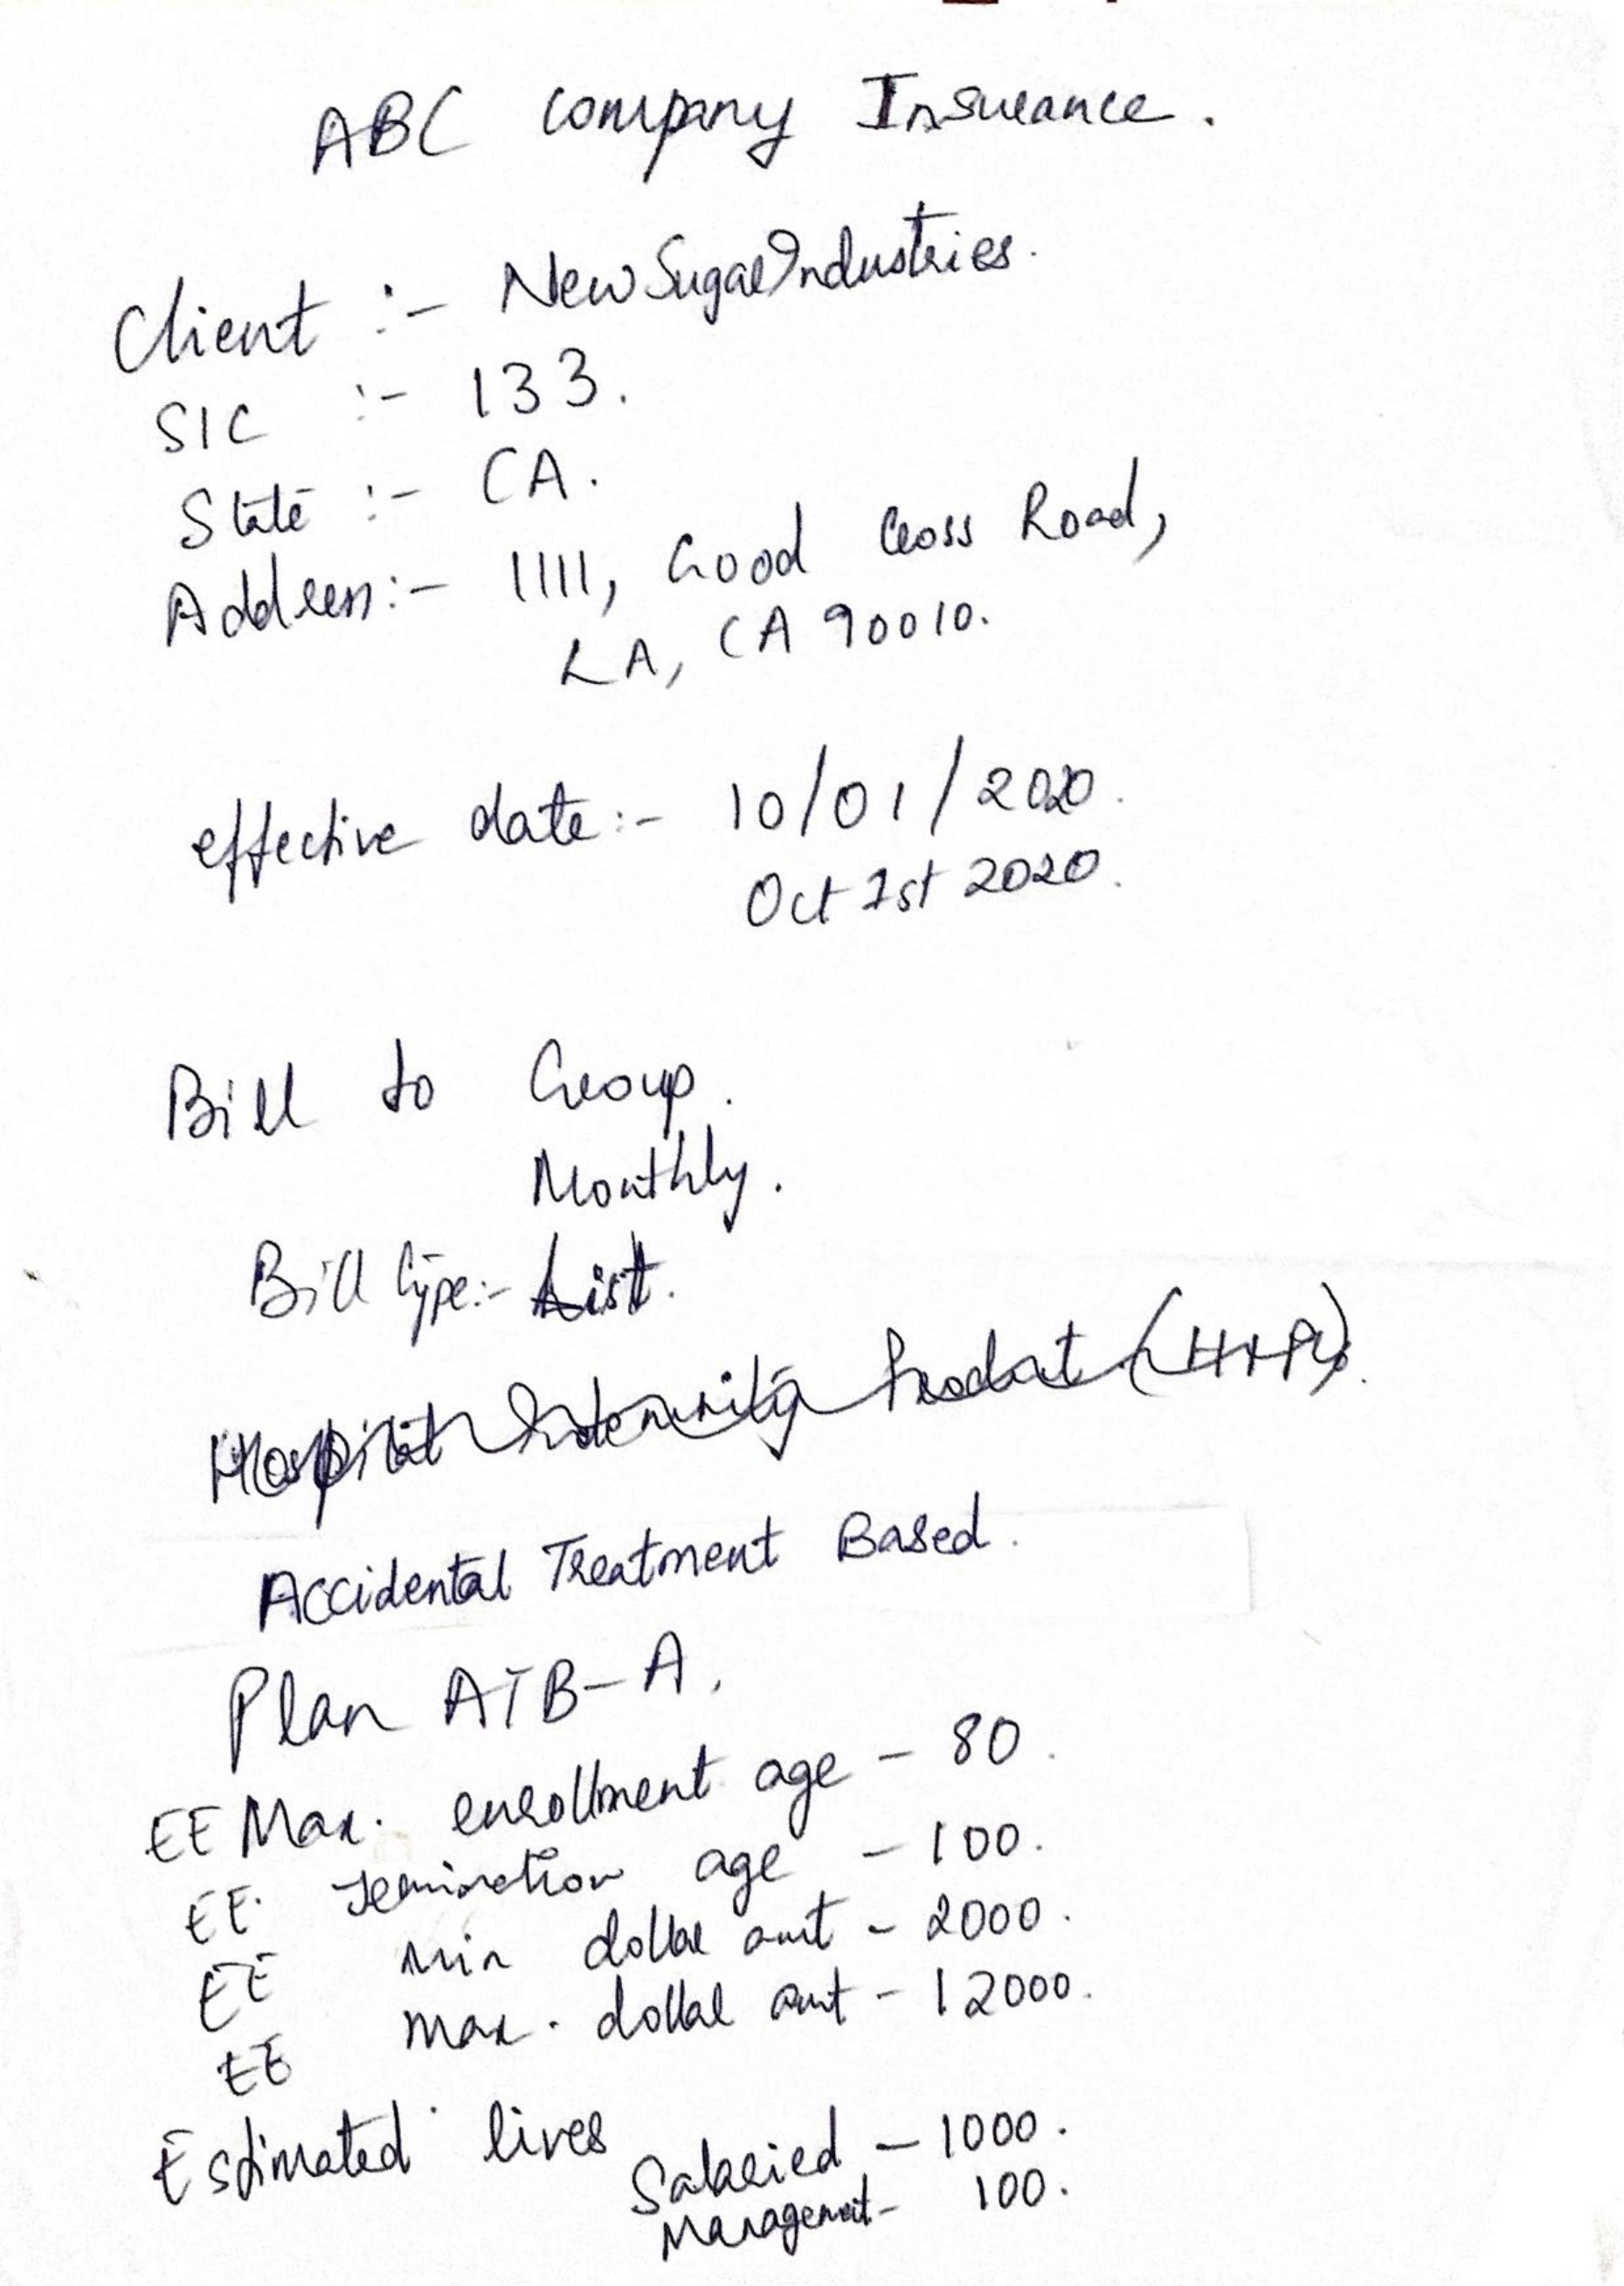 ABC company Insurance.
Client :- New Sugar Industries.
SIC :- 133.
State :- CA.
Address:- 1111, Good Cross Road,
LA, CA 90010.
effective date:- 10/01/2020.
Oct 1st 2020.
Bill to Group.
Monthly.
Bill type:- List.
Hospital Indemnity Product (HIP).
Accidental Treatment Based.
Plan ATB-A.
EE Max. enrollment age - 80.
EE. Termination age - 100.
EE min dollar amt - 2000.
EE max. dollar amt - 12000.
Estimated lives
Salaried - 1000.
Management - 100.